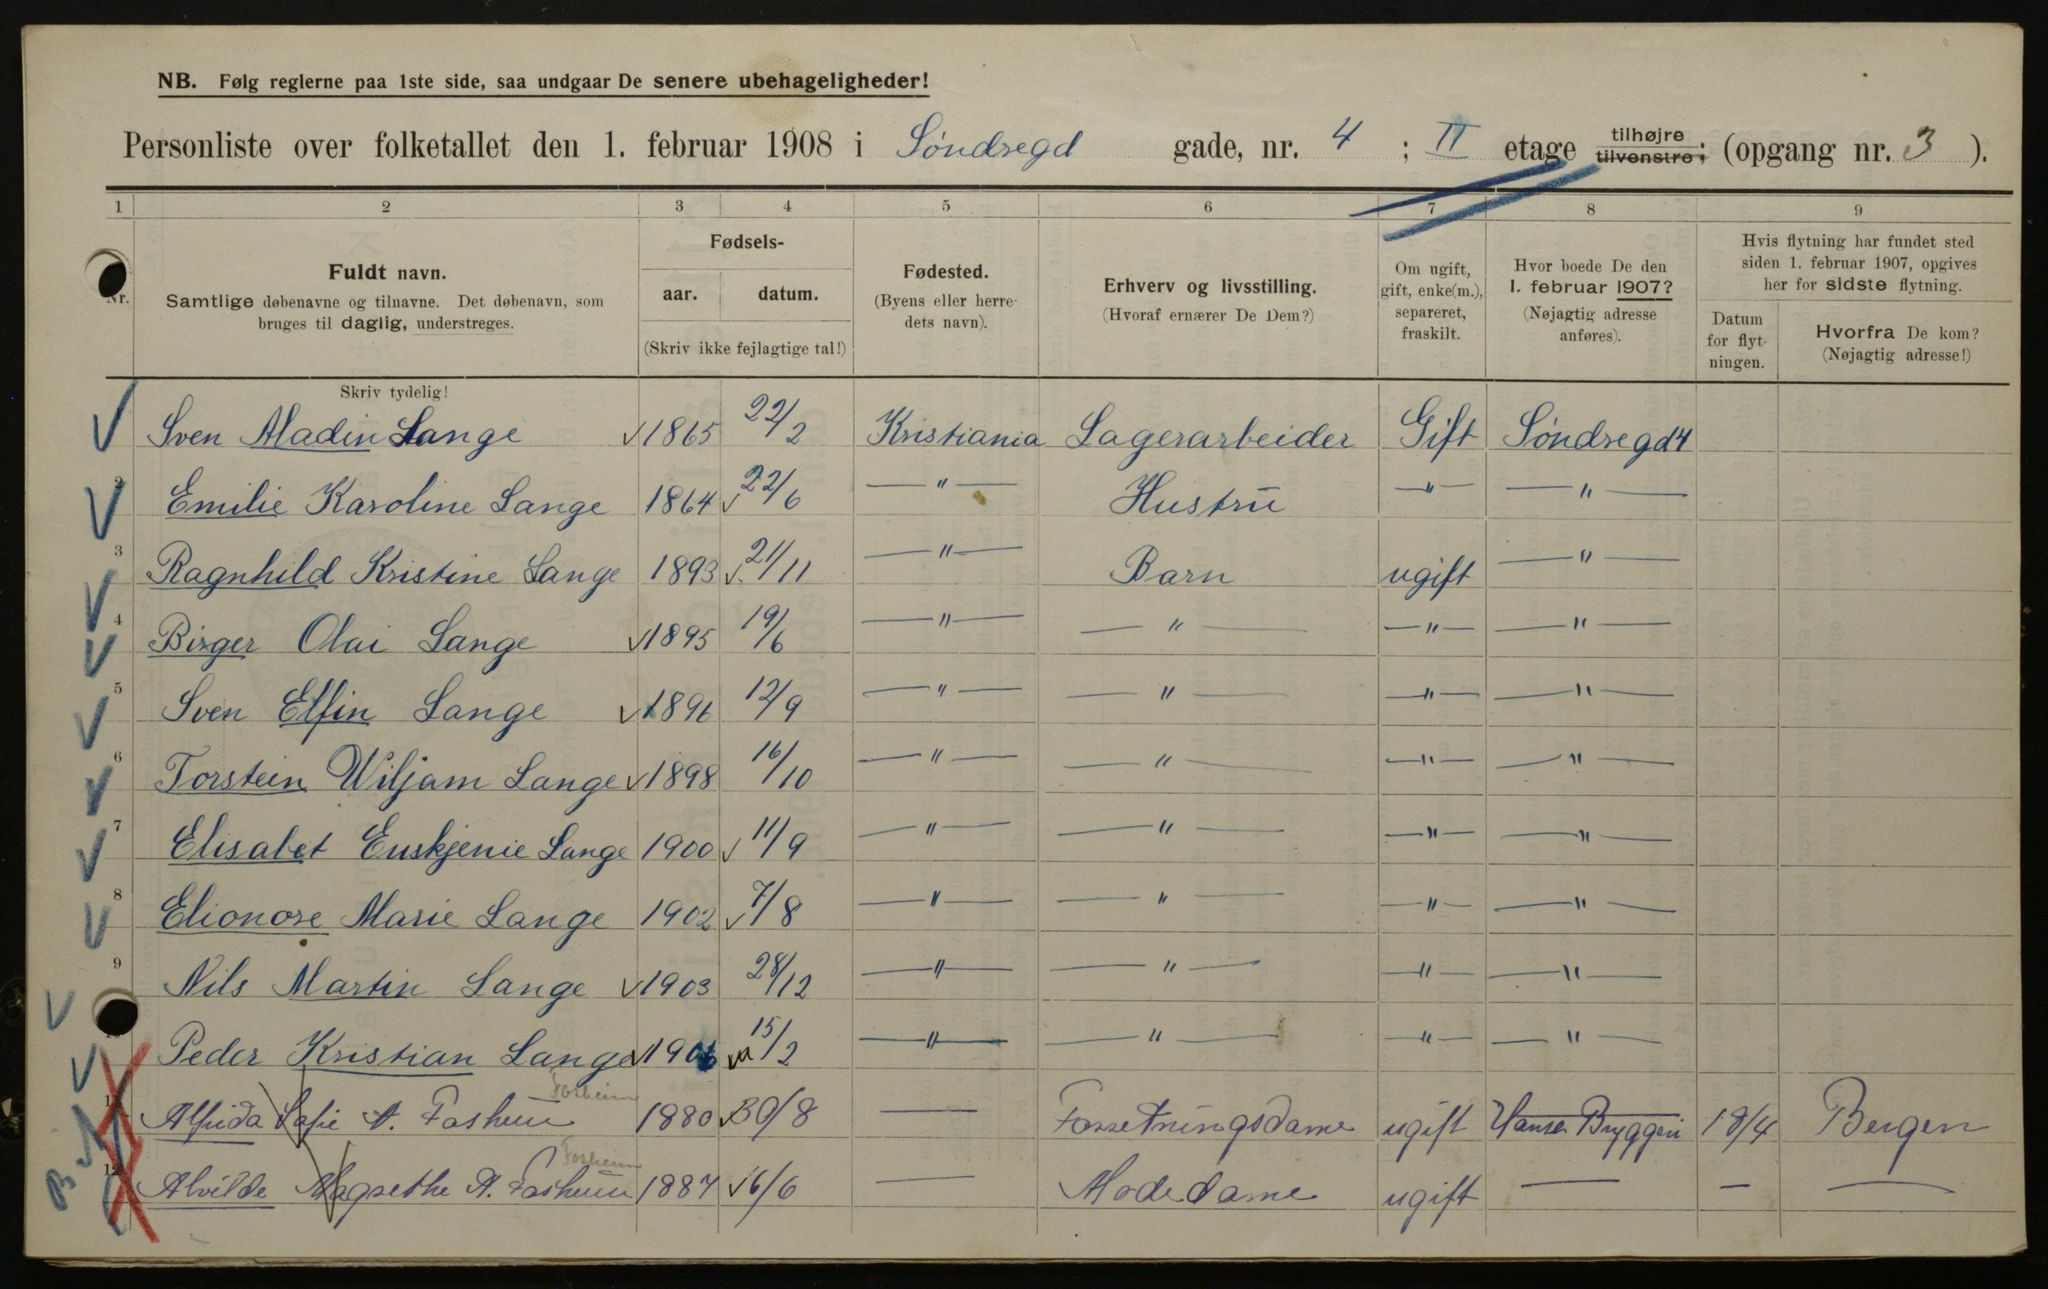 NB. Følg reglerne paa 1ste side, saa undgaar De senere ubehageligheder!
Personliste over folketallet den 1. februar 1908 i Søndregd gade, nr. 4 ; II etage tilhøjre tilvenstre; (opgang nr. 3 ).
1 2 3 4 5 6 7 8 9
Nr.
Fuldt navn.
Samtlige døbenavne og tilnavne. Det døbenavn, som
bruges til daglig, understreges.
Fødsels-
aar. datum.
(Skriv ikke fejlagtige tal!)
Fødested.
(Byens eller herre-
dets navn).
Erhverv og livsstilling.
(Hvoraf ernærer De Dem?)
Om ugift,
gift, enke(m.),
separeret,
fraskilt.
Hvor boede De den
1. februar 1907?
(Nøjagtig adresse
anføres).
Hvis flytning har fundet sted
siden 1. februar 1907, opgives
her for sidste flytning.
Datum
for flyt-
ningen.
Hvorfra De kom?
(Nøjagtig adresse!)
Skriv tydelig!
Sven Aladin Lange 1865 22/2 Kristiania Lagerarbeider Gift Søndregd 4
2 Emilie Karoline Lange 1864 22/6 — " — Hustru — " — — " —
3 Ragnhild Kristine Lange 1893 21/11 — " — Barn ugift — " —
4 Birger Olai Lange 1895 19/6 — " — — " — — " — — " —
5 Sven Elfin Lange 1896 12/9 — " — — " — — " — — " —
6 Torstein Wiljam Lange 1898 16/10 — " — — " — — " — — " —
7 Elisabet Euskjenie Lange 1900 11/9 — " — — " — — " — — " —
8 Elionore Marie Lange 1902 7/8 — " — — " — — " — — " —
9 Nils Martin Lange 1903 28/12 — " — — " — — " — — " —
10 Peder Kristian Lange 15/2 — " — — " — — " — — " —
Fosheim
11 Alfrida Sofie A. Fosheim 1880 30/8 — Forretningsdame ugift Hansa Bryggeri 18/4 Bergen
Fosheim
12 Alvilde Magrethe A. Fosheim 1887 6/6 — Modedame ugift — — —